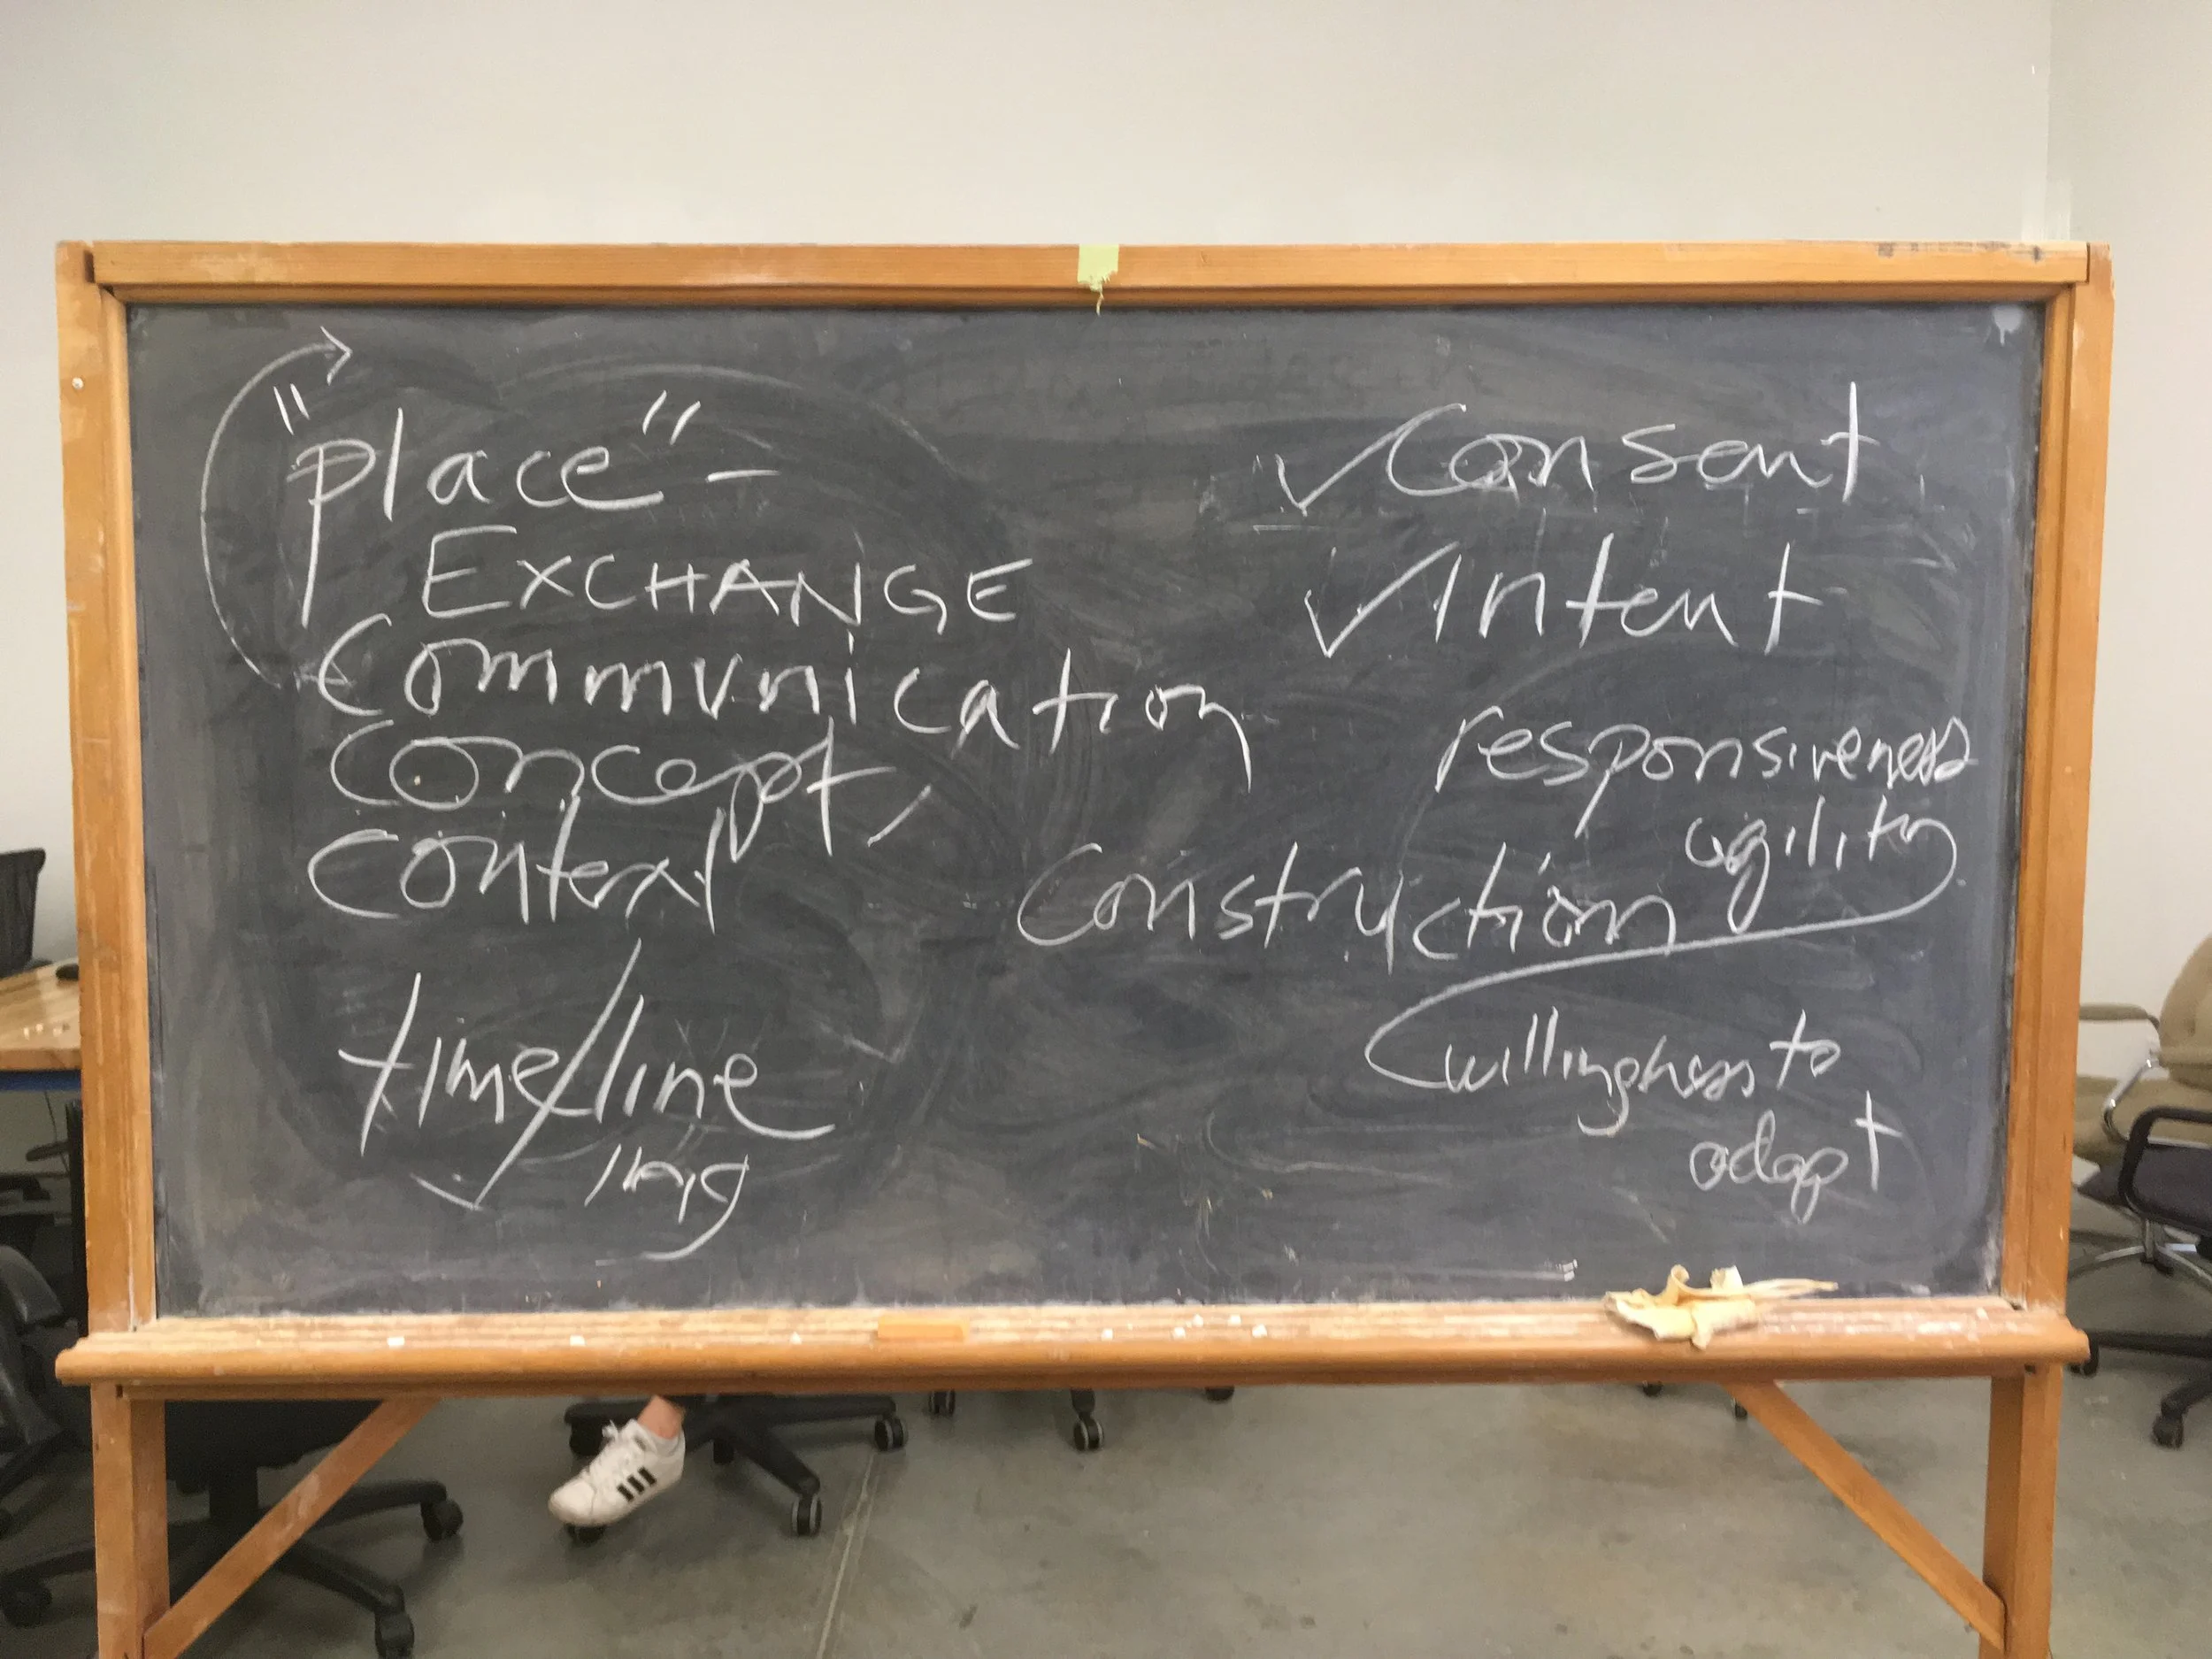 "place" –
EXCHANGE
Communication
Concept,
Context
time/line
ing
✓Consent
✓Intent
responsiveness
agility
Construction
willingness to
adapt